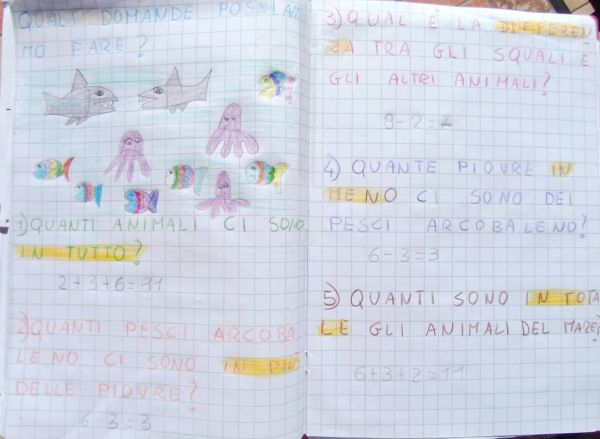 QUALI DOMANDE POSSIAM
MO FARE?
1) QUANTI ANIMALI CI SONO
IN TUTTO?
2+3+6=11
2) QUANTI PESCI ARCOBA
LENO CI SONO IN PIÙ
DELLE PIOVRE?
6-3=3
3) QUAL È LA DIFFEREN
ZA TRA GLI SQUALI E
GLI ALTRI ANIMALI?
9-2=7
4) QUANTE PIOVRE IN
MENO CI SONO DEI
PESCI ARCOBALENO?
6-3=3
5) QUANTI SONO IN TOTA
LE GLI ANIMALI DEL MARE?
6+3+2=11